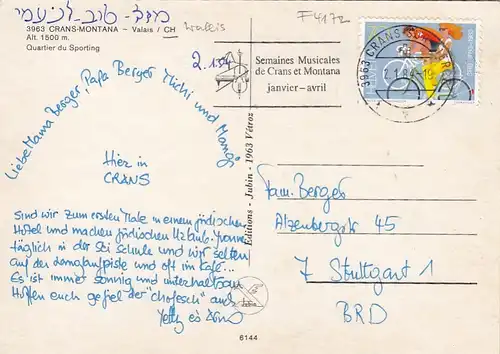 מזל-טוב-לנעמי
3963 CRANS-MONTANA – Valais / CH
Wallis
Alt. 1500 m.
Quartier du Sporting
F4172
2.1.84
Semaines Musicales
de Crans et Montana
janvier–avril
3963 CRANS
2.1.84-19
Liebe Mama Berger, Papa Berger, Michi und
Hier in
CRANS
Sind wir zum ersten Male in einem jüdischen
Hotel und machen jüdischen Urlaub. Yvonne
täglich in der Ski Schule und wir selten
auf der Langlaufpiste und oft im Café...
Es ist immer sonnig und unterhaltsam
Hoffen euch gefiel der "chofesch" auch
Editions - Jubin - 1963 Vétroz
Fam. Berger
Alzenbergstr. 45
7 Stuttgart 1
BRD
6144